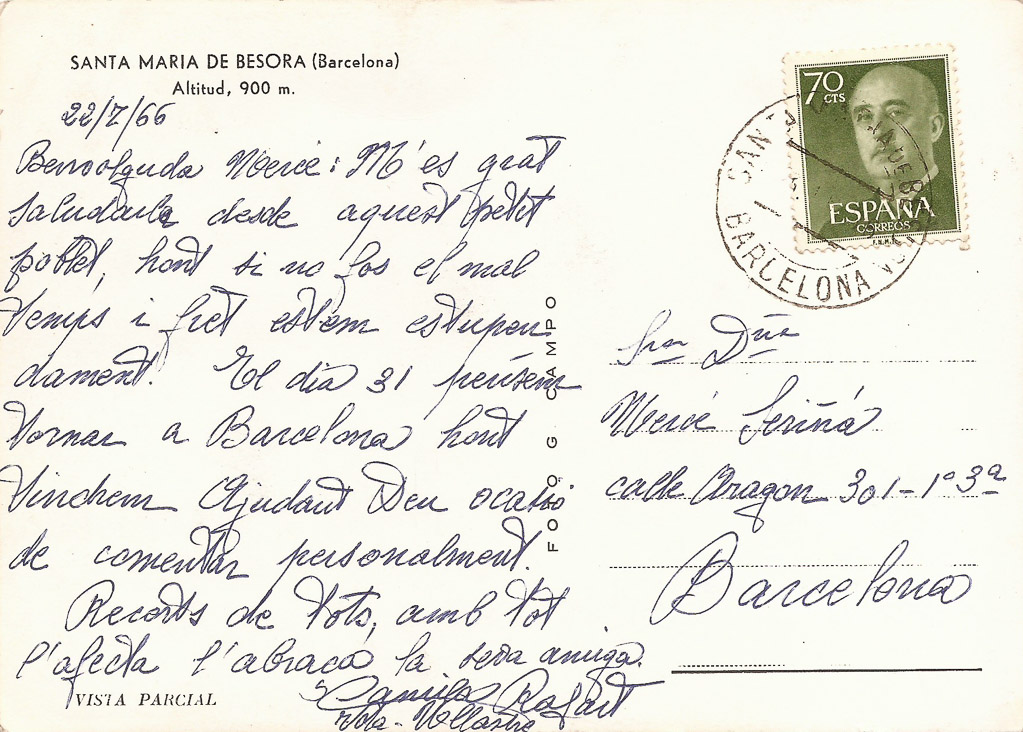 SANTA MARIA DE BESORA (Barcelona)
Altitud, 900 m.
22/7/66
Benvolguda Mercè: M'es grat
saludarla desde aquest petit
poblet, hont si no fos el mal
temps i fret estem estupen
dament. El dia 31 pensem
tornar a Barcelona hont
tindrem Ajudant Deu ocasió
de comentar personalment.
Records de tots, amb tot
l'afecta l'abraça la seva amiga.
Camila Rafart
Vda.
VISTA PARCIAL
FOTO G CAMPO
70 CTS
ESPAÑA
CORREOS
F.N.M.T.
SANTA MARIA DE BESORA
BARCELONA
Sra Dña
Mercé Seriñá
calle Aragon 301-1º 3ª
Barcelona